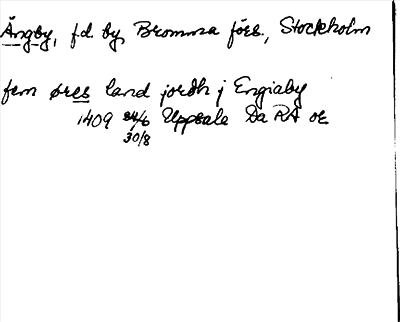 Ängby, f.d. by, Bromma förs., Stockholm
fem øres land jordh j Engiaby
1409 24/6 Uppsala Da RA or
30/8